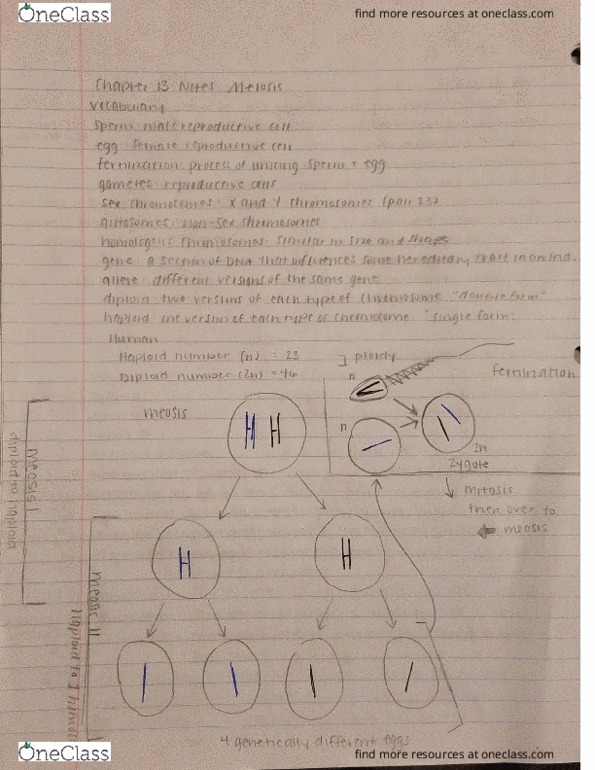 OneClass
find more resources at oneclass.com
Chapter 13 Notes Meiosis
Vocabulary
sperm: male reproductive cell
egg: female reproductive cell
fertilization: process of uniting sperm + egg
gametes: reproductive cells
sex chromosomes: X and Y chromosomes (pair 23)
autosomes: non-sex chromosomes
homologous chromosomes: similar in size and shape
gene: a section of DNA that influences some hereditary trait in an ind.
allele: different versions of the same gene
diploid: two versions of each type of chromosome "double form"
haploid: one version of each type of chromosome "single form"
Human
Haploid number (n) = 23
Diploid number (2n) = 46
] ploidy
fertilization
n
n
2n
zygote
mitosis
then over to
meosis
meosis
meosis I
diploid to haploid
meosis II
Haploid to
4 genetically different eggs
OneClass
find more resources at oneclass.com